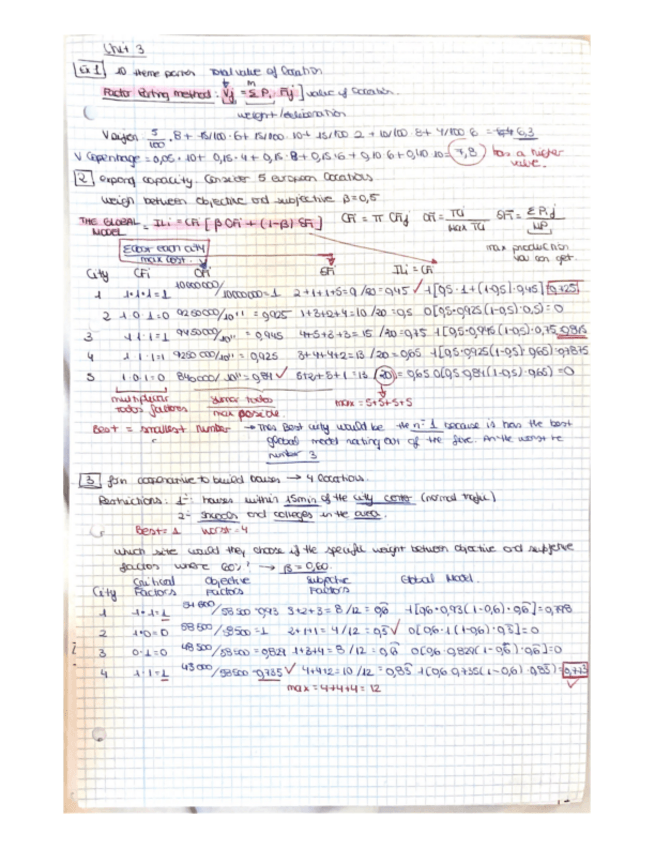 Unit 3
Ex 1 10 theme parks Total value of location
Factor Rating method: Vj = Σ Pi · Fij value of location.
weight / deliberation
5/100 · 8 + 15/100 · 6 + 15/100 · 10 + 15/100 2 + 10/100 8 + 4/100 8 = 6,3
V Copenhague = 0,05 · 10 + 0,15 · 4 + 0,15 · 8 + 0,15 · 6 + 0,10 6 + 0,40 10 = 7,8 has a higher
value.
2 expand capacity. Consider 5 european locations
weigh between objective and subjective β = 0,5
THE GLOBAL MODEL = ILi = CFi [β OFi + (1-β) SFi] CFi = π CFij OFi = TCi / Max TCi SFi = Σ Pij / MP
max production
you can get.
Each city
max cost.
City CFi OFi SFi ILi = CFi
1 1·1·1 = 1 10000000/10000000 = 1 2+1+1+5=9/20=0,45 ✓ 1[0,5 · 1 + (1-0,5) · 0,45] 0,725
2 1·0·1=0 9250000/10" = 0,925 1+3+2+4=10/20=0,5 0[0,5·0,925(1-0,5)·0,5]=0
3 1·1·1=1 9450000/10" = 0,945 4+5+3+3=15/20=0,75 1[0,5·0,945(1-0,5)·0,75
4 1·1·1=1 9250000/10" = 0,925 3+4+4+2=13/20=0,65 1[0,5·0,925(1-0,5)·0,65]=0,7875
5 1·0·1=0 840000/10" = 0,84 ✓ 5+2+5+1=13/20=0,65 0[0,5 0,84(1-0,5)·0,65]=0
multiplicar
todos factores
sumar todos
max posible.
max = 5+5+5+5
Best = smallest number → The Best city would be the nº 1 because is has the best
global model rating out of the five. An the worst he
number 3
3 fin cooperative to build houses → 4 locations.
Restrictions: 1- houses within 15min of the city center (normal traffic)
2- Schools and colleges in the area.
Best = 1 worst = 4
which site would they choose if the specific weight between objective and subjective
factors were 60%? → β = 0,60.
City Critical Factors Objective Factors Subjective Factors Global Model.
1 1·1=1 54600/58500 = 0,93 3+2+3=8/12=0,6 1[0,6·0,93(1-0,6)·0,6]=0,798
2 1·0=0 58500/58500=1 2+1+1=4/12=0,3 ✓ 0[0,6·1(1-0,6)·0,3]=0
3 0·1=0 48500/58500=0,829 1+3+4=8/12=0,6 0[0,6 0,829(1-0,6)·0,6]=0
4 1·1=1 43000/58500=0,735 ✓ 4+4+2=10/12=0,83 1[0,6 0,735(1-0,6)·0,83]=0,773
max = 4+4+4=12